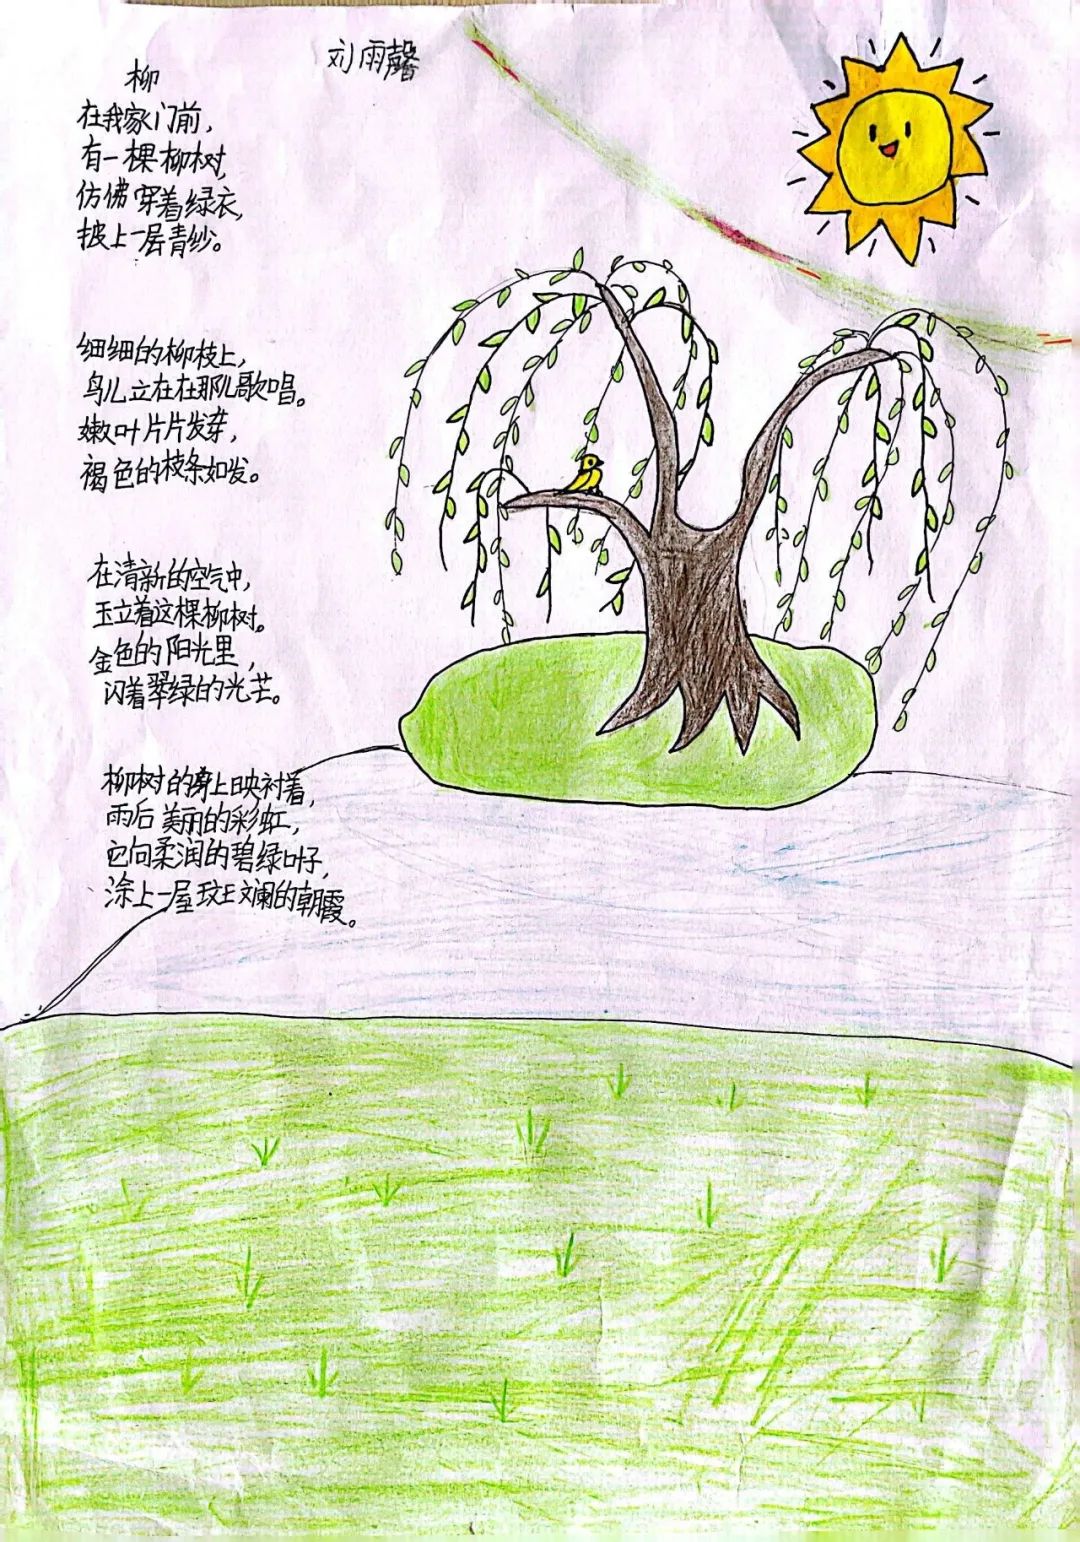 刘雨馨
柳
在我家门前，
有一棵柳树，
仿佛穿着绿衣，
披上一层青纱。
细细的柳枝上，
鸟儿立在在那儿歌唱。
嫩叶片片发芽，
褐色的枝条如发。
在清新的空气中，
玉立着这棵柳树。
金色的阳光里，
闪着翠绿的光芒。
柳树的身上映衬着，
雨后美丽的彩虹，
它向柔润的碧绿叶子，
涂上一层斑斓的朝霞。